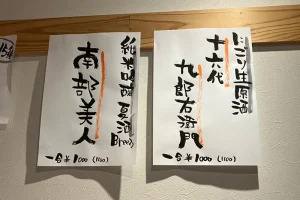 にごり生原酒
十六代
九郎右衛門
一合¥1000(1100)
純米吟醸 夏酒
南部美人
一合¥1000(1100)